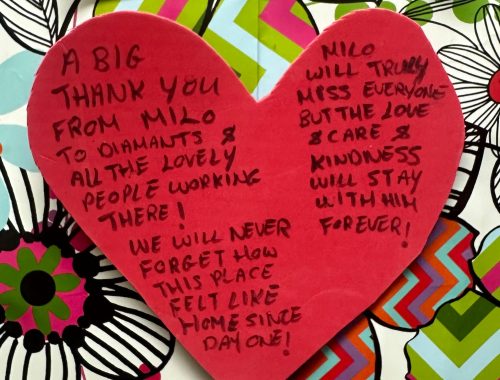 A BIG
THANK YOU
FROM MILO
TO DIAMANTS &
ALL THE LOVELY
PEOPLE WORKING
THERE!
WE WILL NEVER
FORGET HOW
THIS PLACE
FELT LIKE
HOME SINCE
DAY ONE!
MILO
WILL TRULY
MISS EVERYONE
BUT THE LOVE
& CARE &
KINDNESS
WILL STAY
WITH HIM
FOREVER!